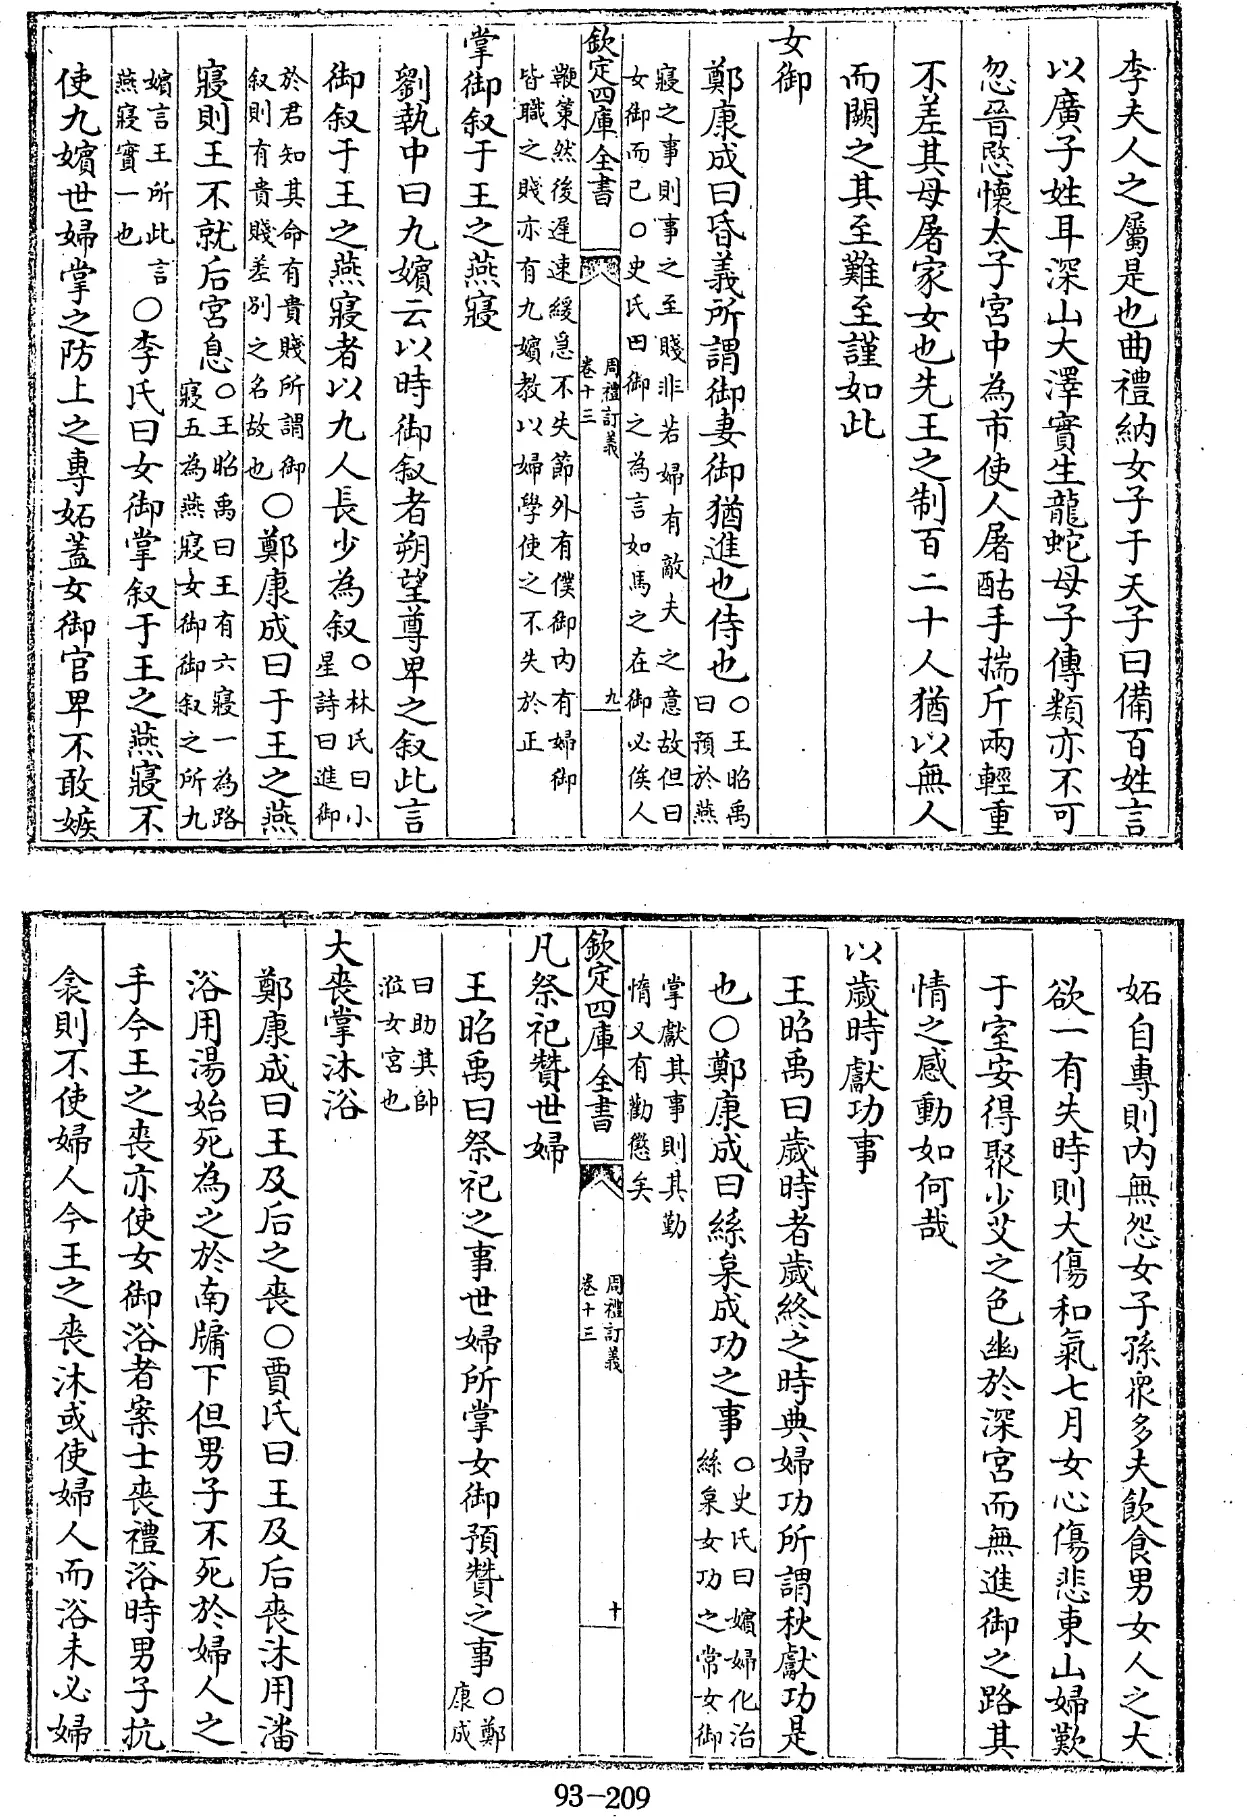 李夫人之屬是也曲禮納女子于天子曰備百姓言
以廣子姓耳深山大澤實生龍蛇母子傳類亦不可
忽晉愍懷太子宮中為市使人屠酤手揣斤兩輕重
不差其母屠家女也先王之制百二十人猶以無人
而闕之其至難至謹如此
女御
鄭康成曰昏義所謂御妻御猶進也侍也○王昭禹曰預於燕
寢之事則事之至賤非若婦有敵夫之意故但曰
女御而已○史氏曰御之為言如馬之在御必俟人
欽定四庫全書
周禮訂義
卷十三
九
鞭策然後遲速緩急不失節外有僕御内有婦御
皆職之賤亦有九嬪教以婦學使之不失於正
掌御叙于王之燕寢
劉執中曰九嬪云以時御叙者朔望尊卑之叙此言
御叙于王之燕寢者以九人長少為叙○林氏曰小星詩曰進御
於君知其命有貴賤所謂御
叙則有貴賤差别之名故也○鄭康成曰于王之燕
寢則王不就后宮息○王昭禹曰王有六寢一為路寢五為燕寢女御御叙之所九
嬪言王所此言
燕寢實一也○李氏曰女御掌叙于王之燕寢不
使九嬪世婦掌之防上之專妬蓋女御官卑不敢嫉
妬自專則内無怨女子孫衆多夫飲食男女人之大
欲一有失時則大傷和氣七月女心傷悲東山婦歎
于室安得聚少艾之色幽於深宮而無進御之路其
情之感動如何哉
以歲時獻功事
王昭禹曰歲時者歲終之時典婦功所謂秋獻功是
也○鄭康成曰絲枲成功之事○史氏曰嬪婦化治絲枲女功之常女御
掌獻其事則其勤
惰又有勸懲矣
欽定四庫全書
周禮訂義
卷十三
十
凡祭祀贊世婦
王昭禹曰祭祀之事世婦所掌女御預贊之事○鄭康成
曰助其帥
涖女宮也
大喪掌沐浴
鄭康成曰王及后之喪○賈氏曰王及后喪沐用潘
浴用湯始死為之於南牖下但男子不死於婦人之
手今王之喪亦使女御浴者案士喪禮浴時男子抗
衾則不使婦人今王之喪沐或使婦人而浴未必婦
93-209